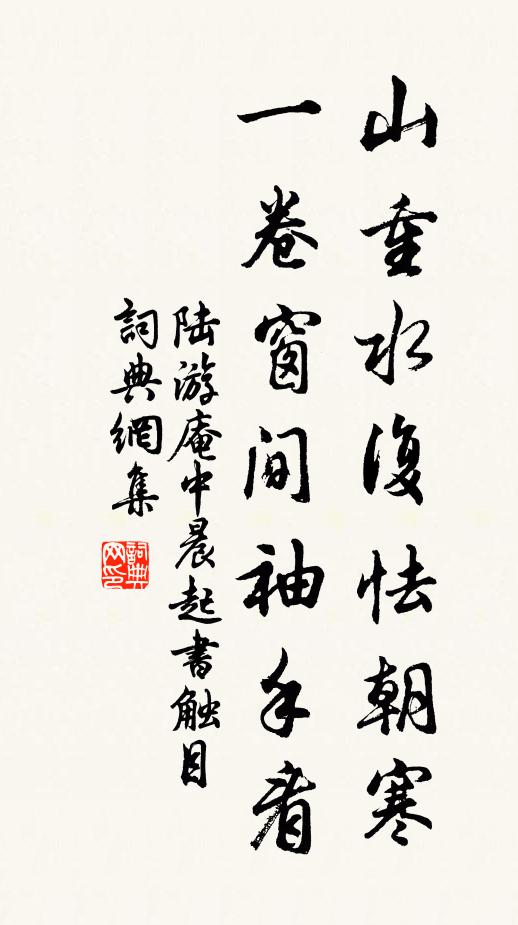 山重水復怯朝寒
一卷窗間袖手看
陆游庵中晨起書触目
詞典網集
詞典網印